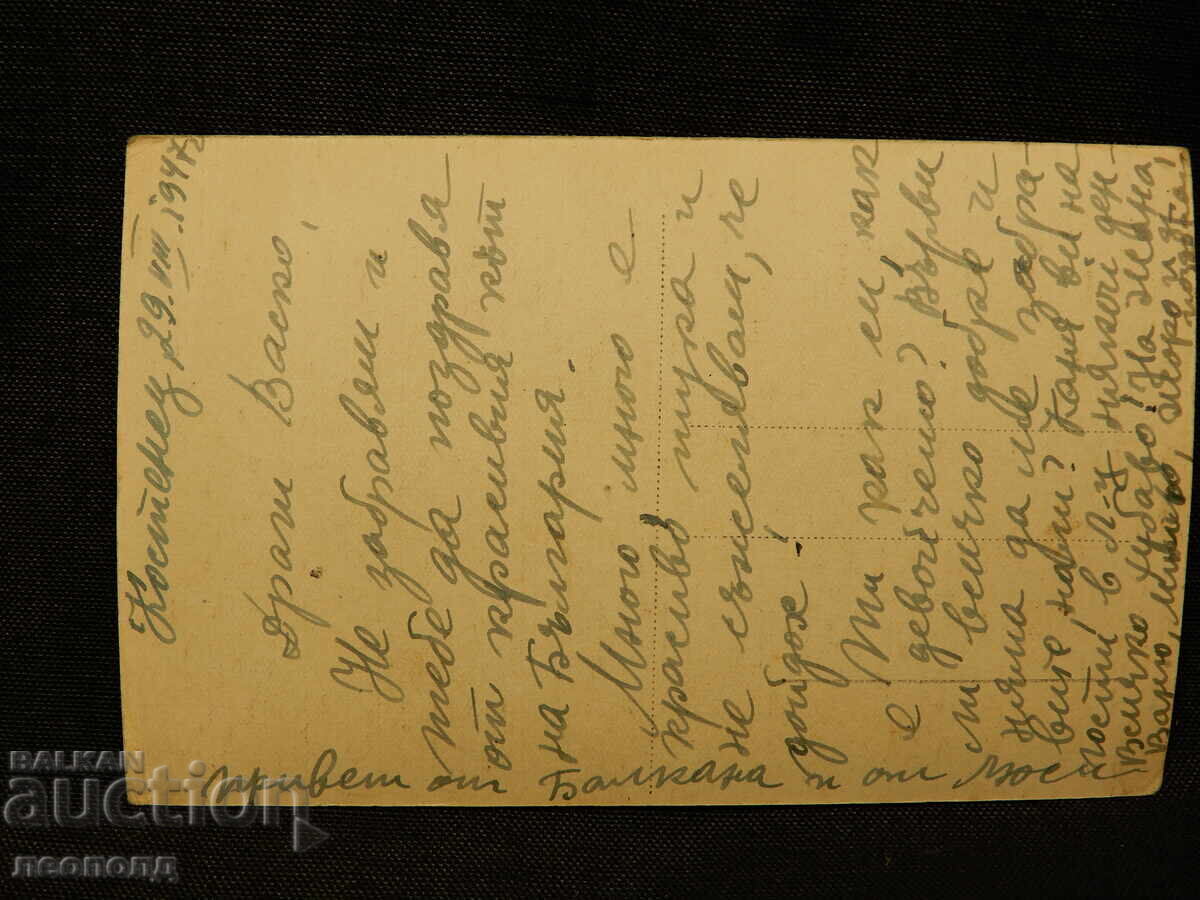 Костенец, 29.VIII.1947 г.
Драги Васко,
Не забравям и
тебе да поздравя
от красивия кът
на България.
Много много е
красиво тука и
не съжелявам, че
дойдох!
Ти как си, как
е девойчето? Върви
ли всичко добре и
няма ли да забра-
вите, нали? Каня ви на
гости в някой ден
Всичко хубаво! На
привет от Балкана и от Люси
BALKAN
auction
леополд